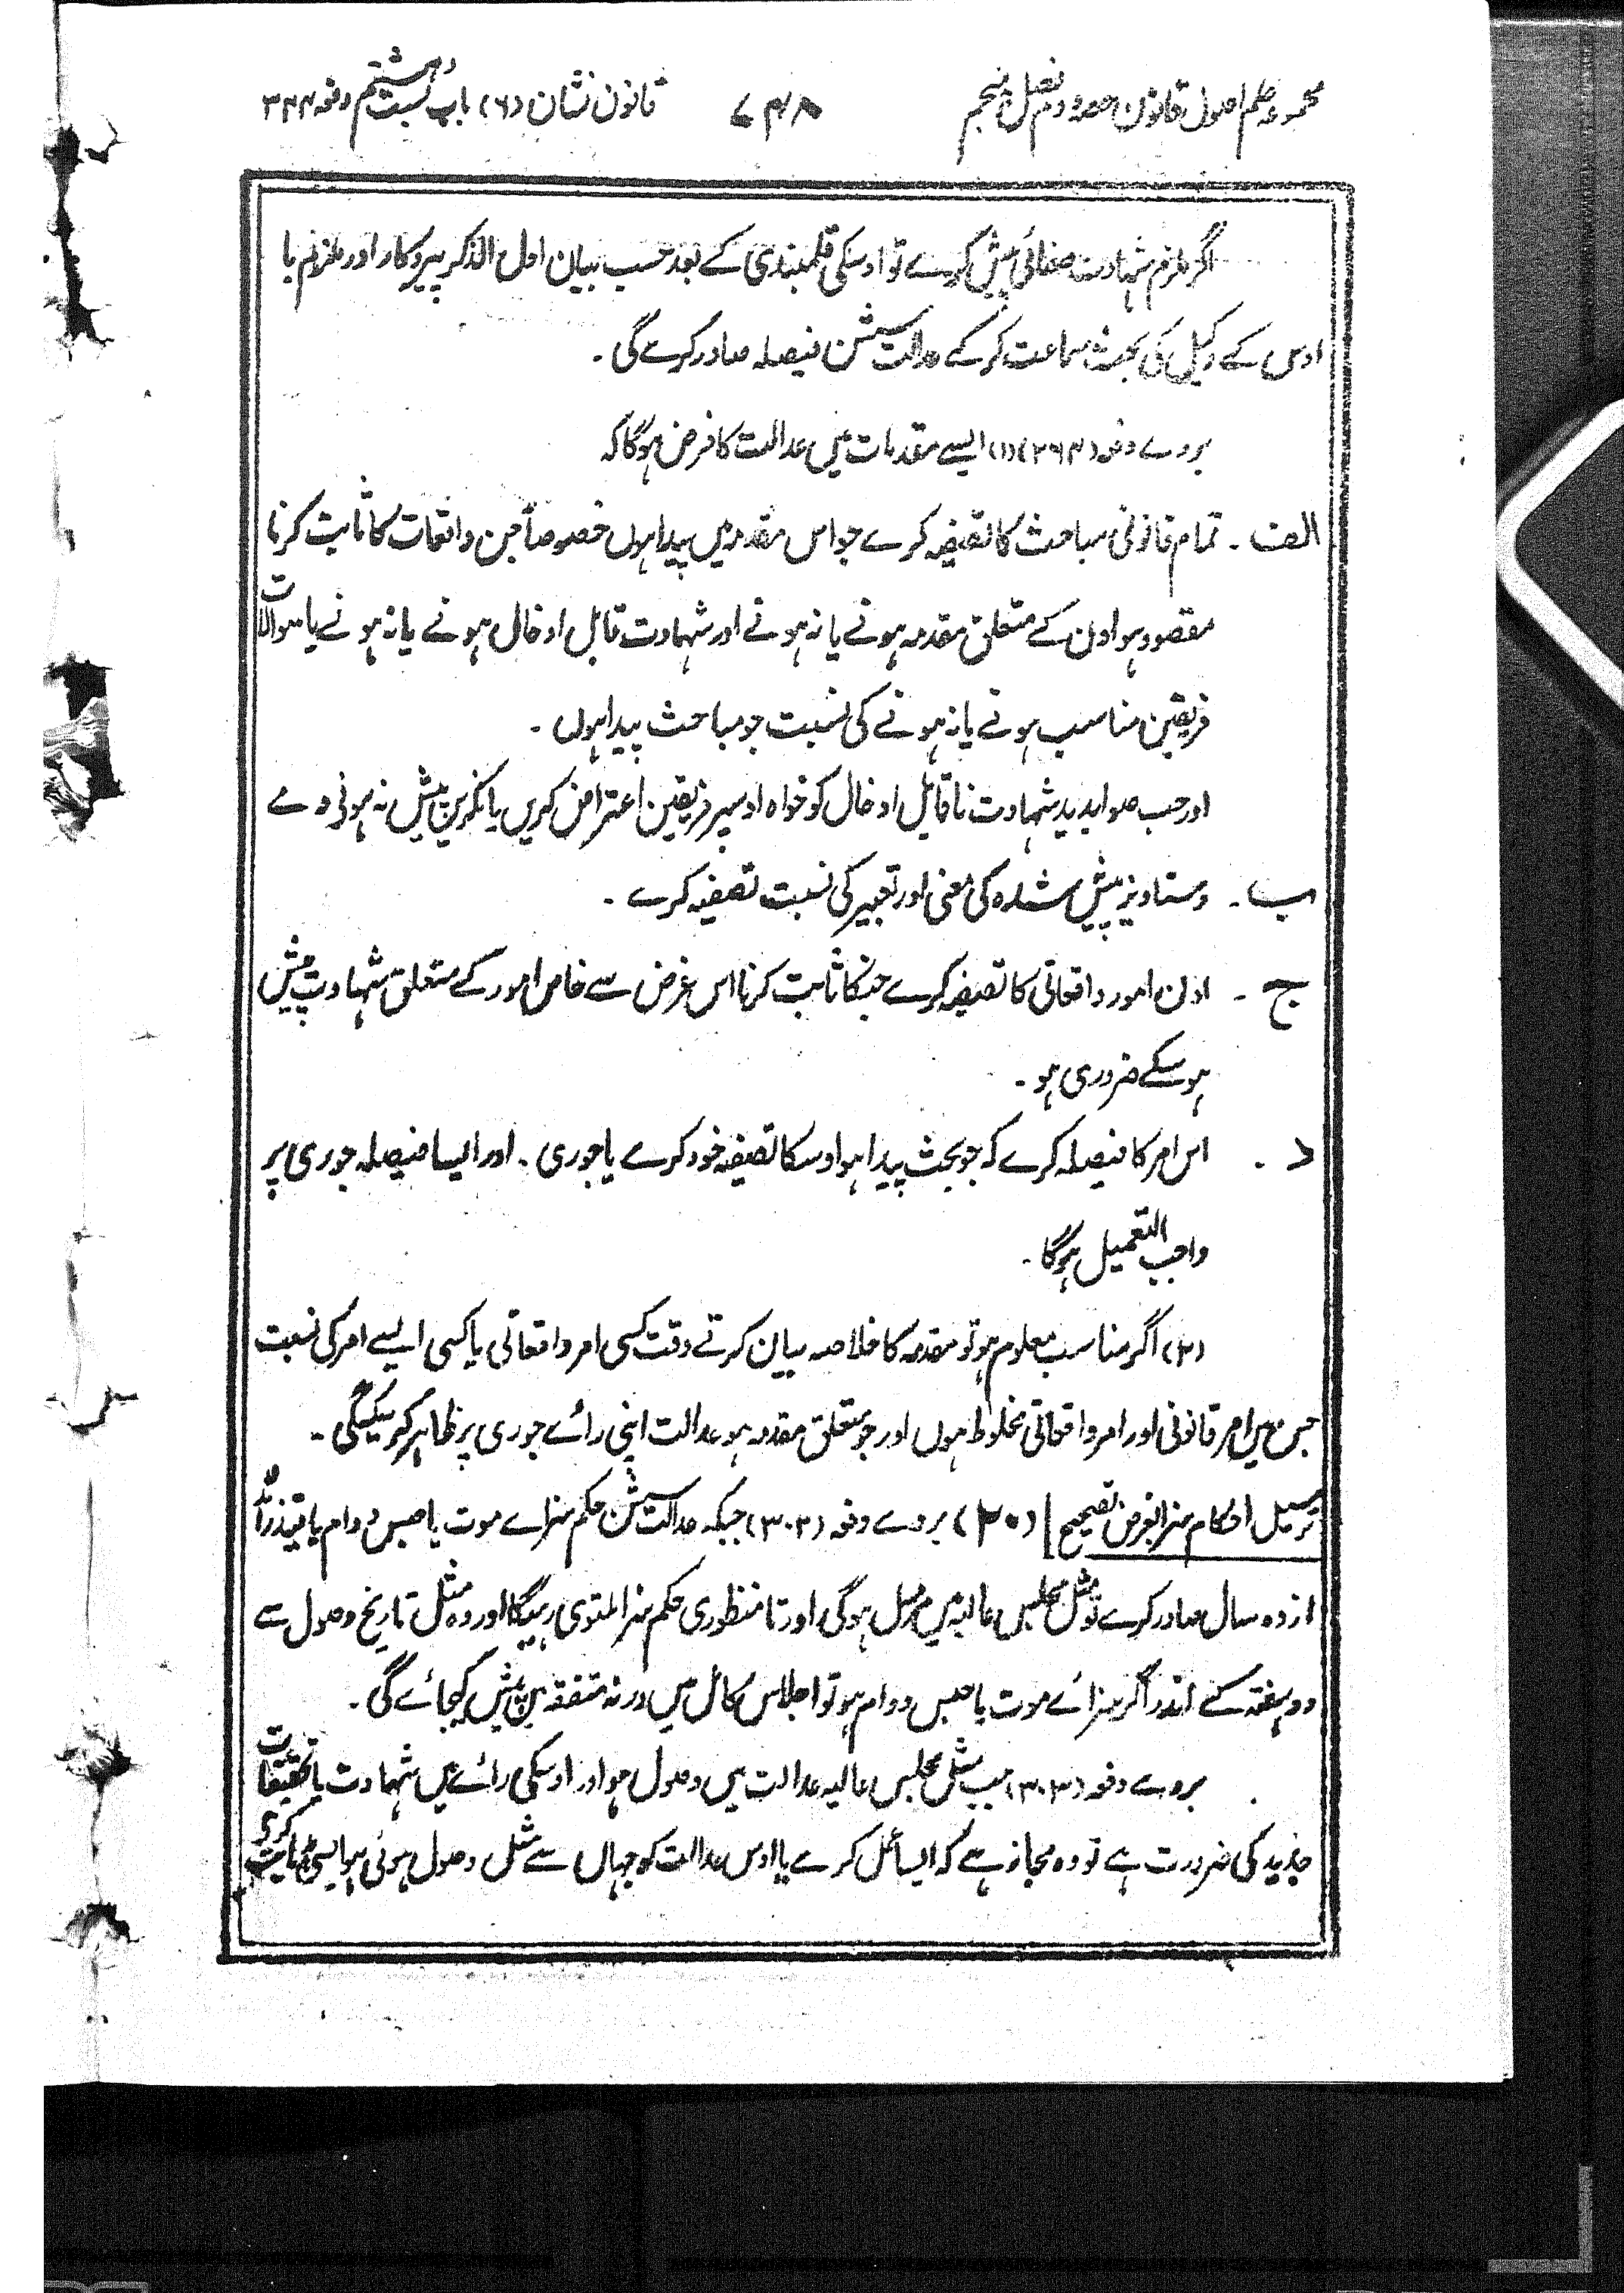 مجموعہ علم اصول قانون حصہ دوم فصل پنجم ۷۴۸ قانون نشان (۶) باب بست ہشتم دفعہ ۳۴۴
اگر ملزم شہادت صفائی پیش کرے تو اوسکی قلمبندی کے بعد حسب بیان اول الذکر پیروکار اور ملزم یا
اوس کے وکیل کی بحث سماعت کرکے عدالت سشن فیصلہ صادر کرے گی ۔
بروے دفعہ (۲۶۴) (۱) ایسے مقدمات میں عدالت کا فرض ہوگا کہ
الف ۔ تمام قانونی مباحث کا تصفیہ کرے جو اس مقدمہ میں پیدا ہوں خصوصاً جن واقعات کا ثابت کرنا
مقصود ہو اون کے متعلق مقدمہ ہونے یا نہ ہونے اور شہادت قابل ادخال ہونے یا نہ ہونے یا سوالات
فریقین مناسب ہونے یا نہ ہونے کی نسبت جو مباحث پیدا ہوں ۔
اور حسب صوابدید شہادت ناقابل ادخال کو خواہ اوسپر فریقین اعتراض کریں یا نکریں پیش نہ ہونی دے
ب ۔ دستاویز پیش شدہ کی معنی اور تعبیر کی نسبت تصفیہ کرے ۔
ج ۔ اون امور واقعاتی کا تصفیہ کرے جنکا ثابت کرنا اس غرض سے خاص امور کے متعلق شہادت پیش
ہوسکے ضروری ہو ۔
د ۔ اس امر کا فیصلہ کرے کہ جو بحث پیدا ہو اوسکا تصفیہ خود کرے یا جوری ۔ اور ایسا فیصلہ جوری پر
واجب التعمیل ہوگا ۔
(۲) اگر مناسب معلوم ہو تو مقدمہ کا خلاصہ بیان کرتے وقت کسی امر واقعاتی یا کسی ایسے امر کی نسبت
جس میں امر قانونی اور امر واقعاتی مخلوط ہوں اور جو متعلق مقدمہ ہو عدالت اپنی رائے جوری پر ظاہر کرسکیگی ۔
ترسیل احکام سزا بغرض تصحیح | (۲۰) بروے دفعہ (۳۰۲) جبکہ عدالت سشن حکم سزاے موت یا حبس دوام یا قید زائد
از دہ سال صادر کرے تو مثل مجلس عالیہ میں مرسل ہوگی اور تا منظوری حکم سزا ملتوی رہیگا اور وہ مثل تاریخ وصول سے
دو ہفتہ کے اندر اگر سزائے موت یا حبس دوام ہو تو اجلاس کامل میں ورنہ متفقہ میں پیش کیجائے گی ۔
بروے دفعہ (۳۰۳) جب مثل مجلس عالیہ عدالت میں وصول ہو اور اوسکی رائے میں شہادت یا تحقیقات
جدید کی ضرورت ہے تو وہ مجاز ہے کہ ایسا عمل کرے یا اوس عدالت کو جہاں سے مثل وصول ہوئی ہو ایسی